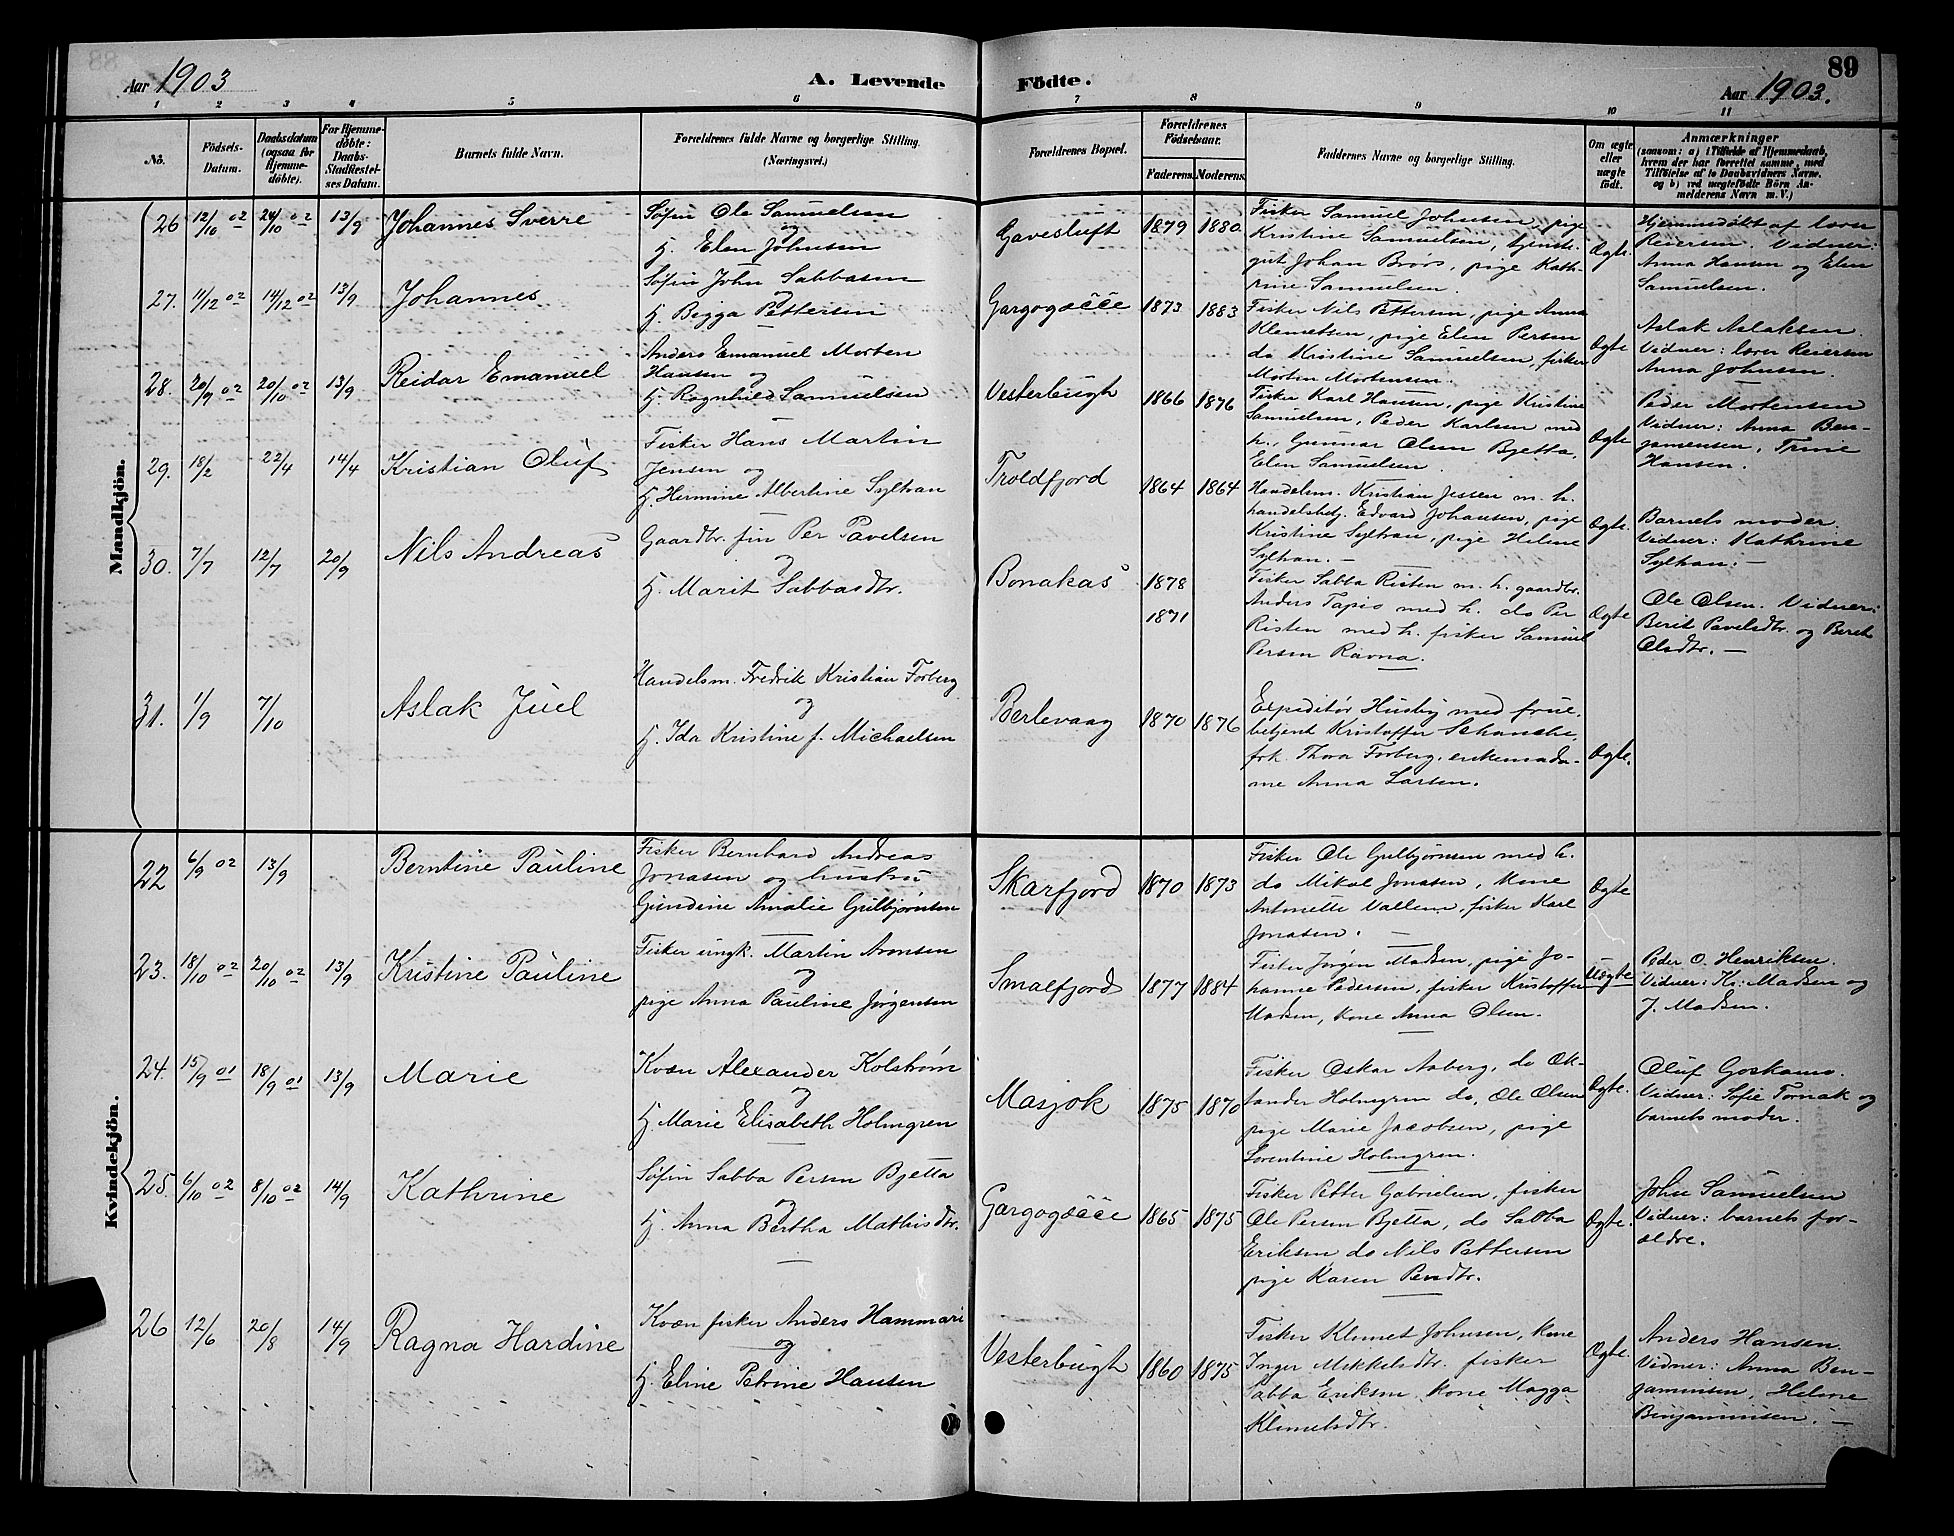 89
Aar 1903
A. Levende
Födte.
Aar 1903.
1 2 3 4 5 6 7 8 9 10 11
No.
Födsels-
Datum.
Daabsdatum
(ogsaa for
Hjemme-
döbte).
For Hjemme-
döbte:
Daabs-
Stadfæstel-
ses Datum.
Barnets fulde Navn.
Forældrenes fulde Navne og borgerlige Stilling.
(Næringsvei.)
Forældrenes Bopæl.
Forældrenes
Födselsaar.
Faderens.
Moderens.
Faddernes Navne og borgerlige Stilling.
Om ægte
eller
uægte
födt.
Anmærkninger
(saasom: a) i Tilfælde af Hjemmedaab,
hvem der har forrettet samme, med
Tilföielse af to Daabsvidners Navne.
og b) ved uægtefödte Börn An-
melderens Navn m. V.)
Mandkjön.
26 12/10 02 24/10 02 13/9 Johannes Sverre
Søfin Ole Samuelsen
og
H. Elen Johnsen
Gavesluft 1879 1880
Fisker Samuel Johnsen, pige
Kristine Samuelsen, tjenest-
gut Johan Brørs, pige Kath-
rine Samuelsen.
Ægte.
Hjemmedøbt af lærer
Reiersen. Vidner:
Anna Hansen og Elen
Samuelsen.
27. 11/12 02 14/12 02 13/9 Johannes
Søfin John Sabbasen
og
H. Bigga Pettersen
Gargogæčče 1873 1883
Fisker Nils Pettersen, pige Anna
Klemetsen, pige Elen Persen
do Kristine Samuelsen, fisker
Morten Mortensen.
Ægte
Aslak Aslaksen
Vidner: lærer Reiersen
Anna Johnsen.
28. 20/9 02 20/10 02 13/9 Reidar Emanuel
Anders Emanuel Morten
Hansen og
H. Ragnhild Samuelsen
Vesterbugt 1866 1876
Fisker Karl Hansen, pige Kristine
Samuelsen, Peder Karlsen med
h., Gunnar Olsen Bjetta,
Elen Samuelsen.
Ægte
Peder Mortensen
Vidner: Anna Ben-
jamensen, Trine
Hansen.
29. 18/2 22/4 14/4 Kristian Oluf
Fisker Hans Martin
Jensen og
H. Hermine Albertine Sylvan
Troldfjord 1864 1864
Handelsm. Kristian Jessen m. h.
handelsbetj. Edvard Johansen, pige
Kristine Sylvan, pige Helene
Sylvan. —
Ægte.
Barnets moder.
Vidner: Kathrine
Sylvan. —
30. 7/7 12/7 20/9 Nils Andreas
Gaardbr. fin Per Pavelsen
og
H. Marit Sabbasdtr.
Bonakas 1878
1871
Fisker Sabba Risten m. h. gaardbr.
Anders Tapio med h. do Per
Risten med h. fisker Samuel
Persen Ravna.
Ægte
Ole Olsen. Vidner:
Berit Pavelsdtr. og Berit
Olsdtr. —
31. 1/9 7/10 Aslak Juel
Handelsm. Fredrik Kristian Forberg
og
H. Ida Kristine f. Michaelsen
Berlevaag 1870 1876
Expeditør Husby med frue,
betjent Kristoffer Schanche,
frk. Thora Forberg, enkemada-
me Anna Larsen.
Ægte.
Kvindekjön.
22 6/9 02 13/9 Berntine Pauline
Fisker Bernhard Andreas
Jonasen og hustru
Gundine Amalie Gulbjørnsen
Skarfjord 1870 1873
Fisker Ole Gulbjørnsen med h.
do Mikal Jonasen, kone
Antonette Vallem, fisker Karl
Jonasen. —
Ægte
23. 18/10 02 20/10 02 13/9 Kristine Pauline
Fisker ungk. Martin Aronsen
og
pige Anna Pauline Jørgensen
Smalfjord 1877 1884
Fisker Jørgen Madsen, pige Jo-
hanne Pedersen, fisker Kristoffer
Madsen, kone Anna Olsen.
Uægte
Peder O. Henriksen.
Vidner: Kr. Madsen og
J. Madsen.
24. 15/9 01 18/9 01 13/9 Marie
Kvæn Alexander Kolstrøm
og
H. Marie Elisabeth Holmgren
Masjok 1875 1870
Fisker Oskar Aaberg, do Ok-
sander Holmgren do, Ole Olsen
pige Marie Jacobsen, pige
Lorentine Holmgren.
Ægte.
Oluf Goskamo.
Vidner: Sofie Tornak og
barnets moder.
25. 6/10 02 8/10 02 14/9 Kathrine
Søfin Sabba Persen Bjetta
og
H. Anna Bertha Mathisdtr.
Gargogæčče 1865 1875
Fisker Petter Gabrielsen, fisker
Ole Persen Bjetta, do Sabba
Eriksen do Nils Pettersen
pige Karen Persdtr.
Ægte.
John Samuelsen
Vidner: barnets for-
ældre.
26 12/6 20/8 14/9 Ragna Hardine
Kvæn fisker Anders Hammari
og
H. Eline Petrine Hansen
Vesterbugt 1860 1875
Fisker Klemet Johnsen, kone
Inger Mikkelsdtr. fisker
Sabba Eriksen, kone Magga
Klemetsdtr.
Ægte.
Anders Hansen.
Vidner: Anna Ben-
jaminsen, Helene
Benjaminsen. —